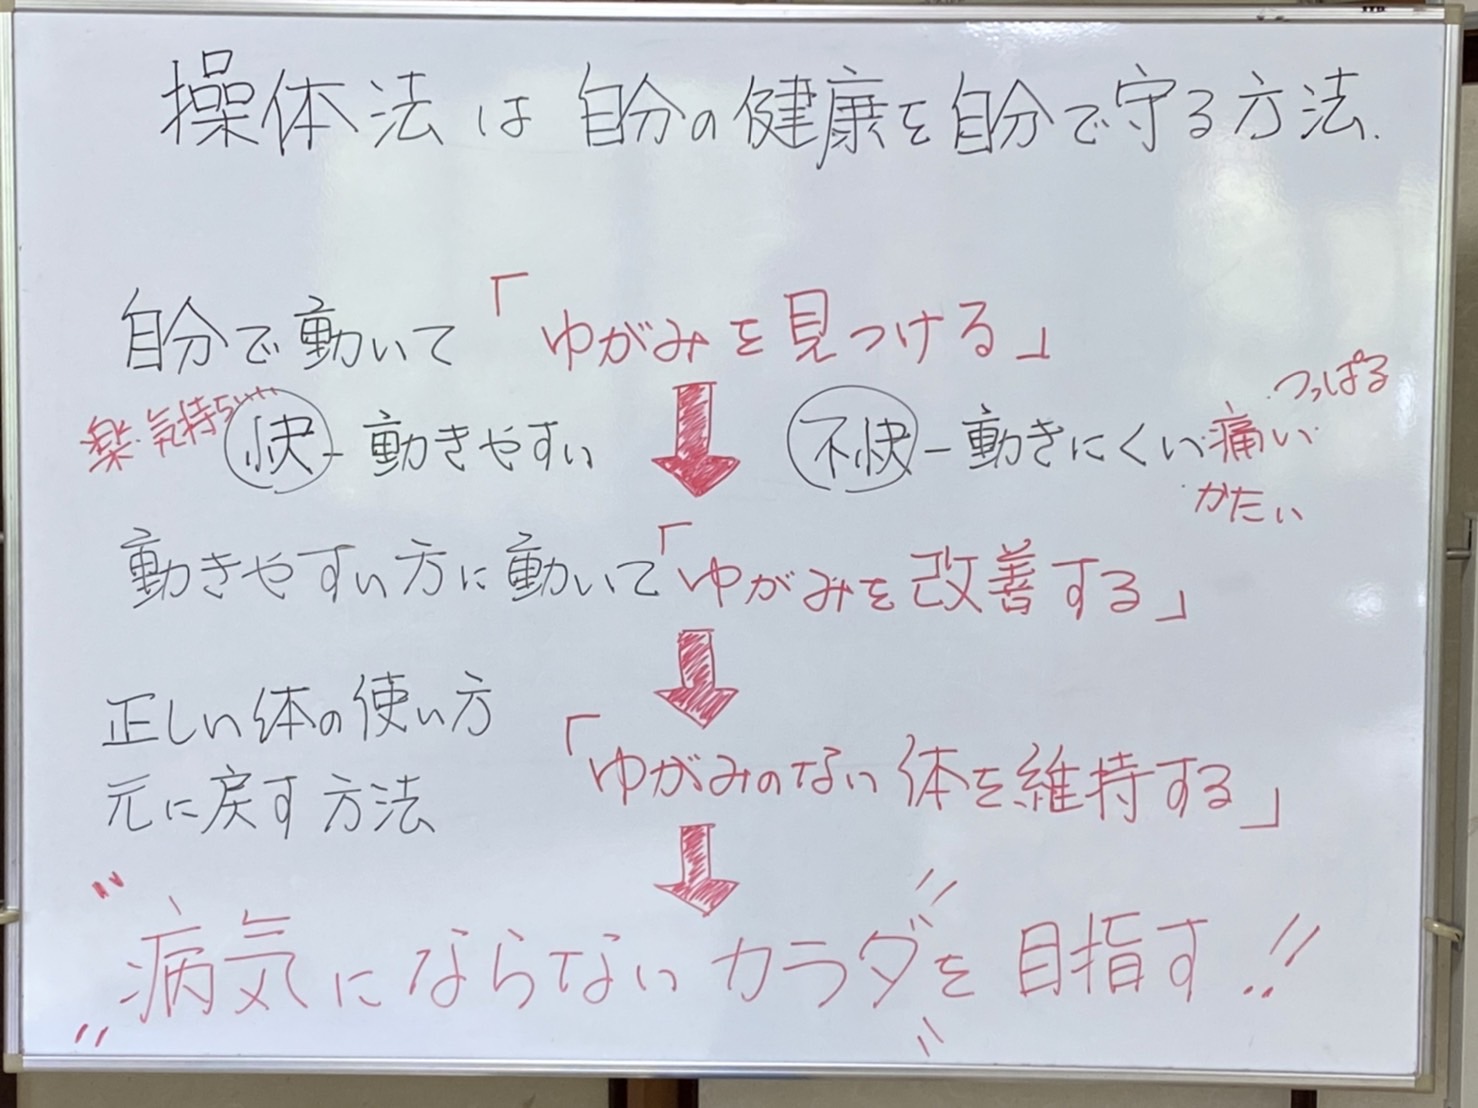 操体法は自分の健康を自分で守る方法.
自分で動いて「ゆがみを見つける」
楽・気持ちいい 快-動きやすい
不快-動きにくい・痛い・つっぱる・かたい
動きやすい方に動いて「ゆがみを改善する」
正しい体の使い方
元に戻す方法
「ゆがみのない体を維持する」
"病気にならないカラダ"を目指す!!